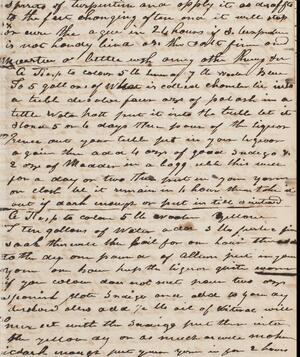 Spirits of turpentine and apply it as drafts
to the feet changing often and it will stop
or cure the ague in 24 hours if
is not handy bind on the salt
a little with any other thing
A Recp to colour 5 lb 7 lb Wool Blue
To 5 gallons of What is called chamber lie into
a tub dissolve four ozs of potash in a
little Water hot put it into the tub let it
stand 5 or 6 days then some of the liquor
out your tub put in your liquor
again then add 4 ozs of good Indigo &
2 ozs of Madder in a bag rub this
for a day or two then put in your yarn
or cloth let it remain in 1 hour then take it
out if dark enough or put in till suited
A Recp to colour 5 lb Woolen Yellow
Ten gallons of Water add 3 lb
soak then boil for one hour then add
to the dye one pound of Allum put in your
yarn one hour keep the liquor quite warm
if your colour does not suit have two ozs
Spanish flote Indigo once add to your dye
add ½ the oil of Vitriol will
mix it with the Indigo put them into
the yellow dye or as much as will
dark enough put your yarn in for 2 hours